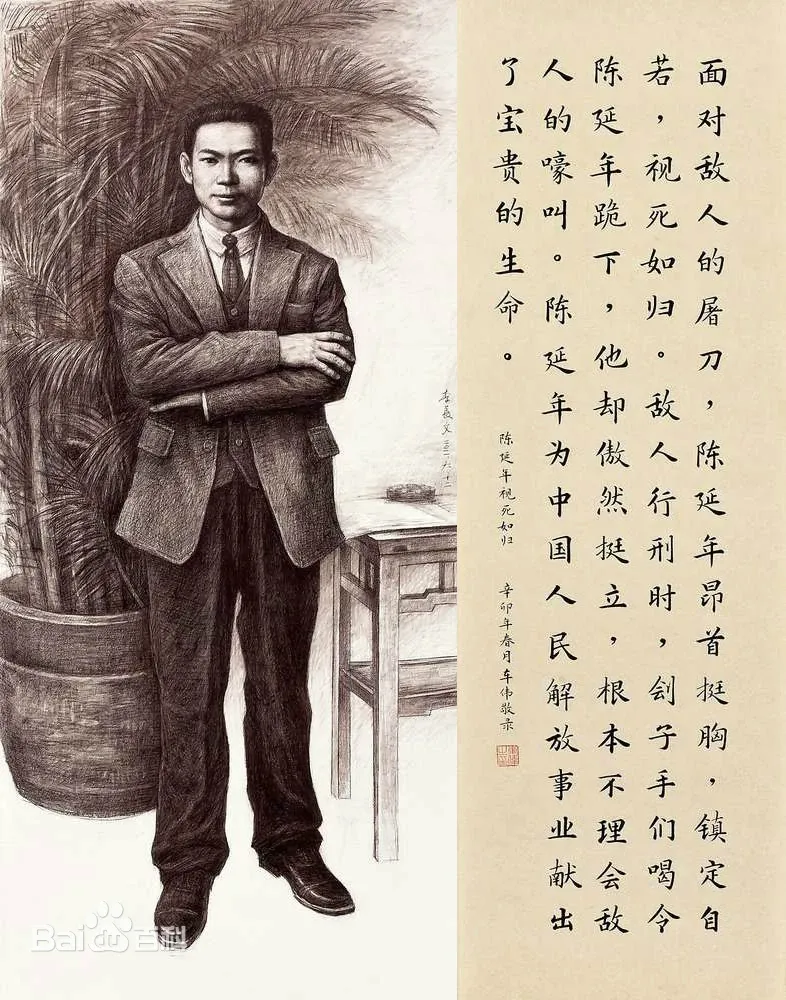 面对敌人的屠刀，陈延年昂首挺胸，镇定自
若，视死如归。敌人行刑时，刽子手们喝令
陈延年跪下，他却傲然挺立，根本不理会敌
人的嚎叫。陈延年为中国人民解放事业献出
了宝贵的生命。
陈延年视死如归　辛卯年春月车伟敬录
Bai百科